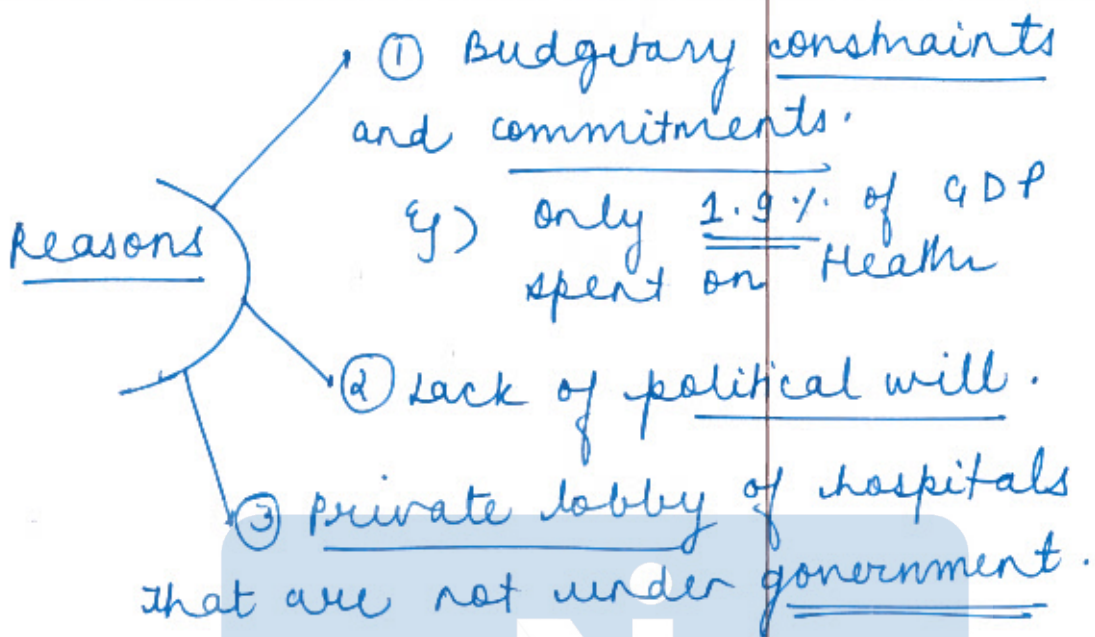 ① Budgetary constraints
and commitments.
Eg) only 1.9% of GDP
spent on Health
Reasons
② Lack of political will.
③ Private lobby of hospitals
that are not under government.